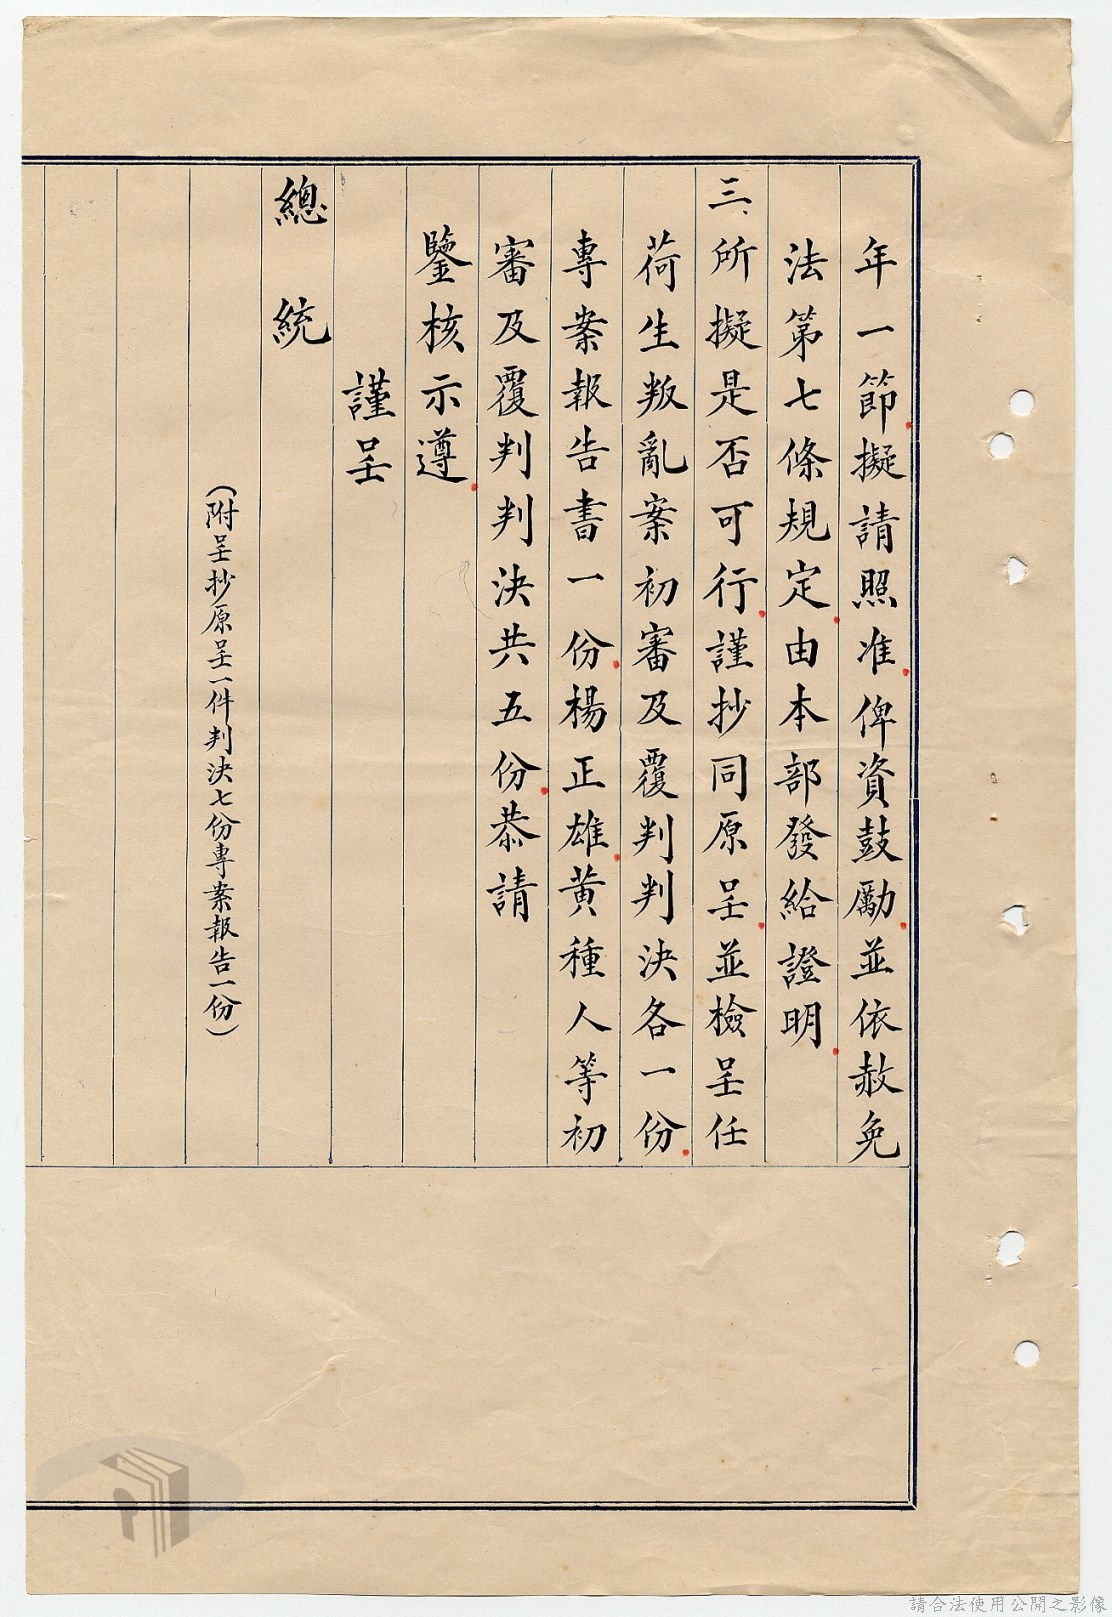 年一節擬請照准俾資鼓勵並依赦免
法第七條規定由本部發給證明
三、所擬是否可行謹抄同原呈並檢呈任
荷生叛亂案初審及覆判判決各一份
專案報告書一份楊正雄黃種人等初
審及覆判判決共五份恭請
鑒核示遵
謹呈
總統
(附呈抄原呈一件判決七份專案報告一份)
請合法使用公開之影像